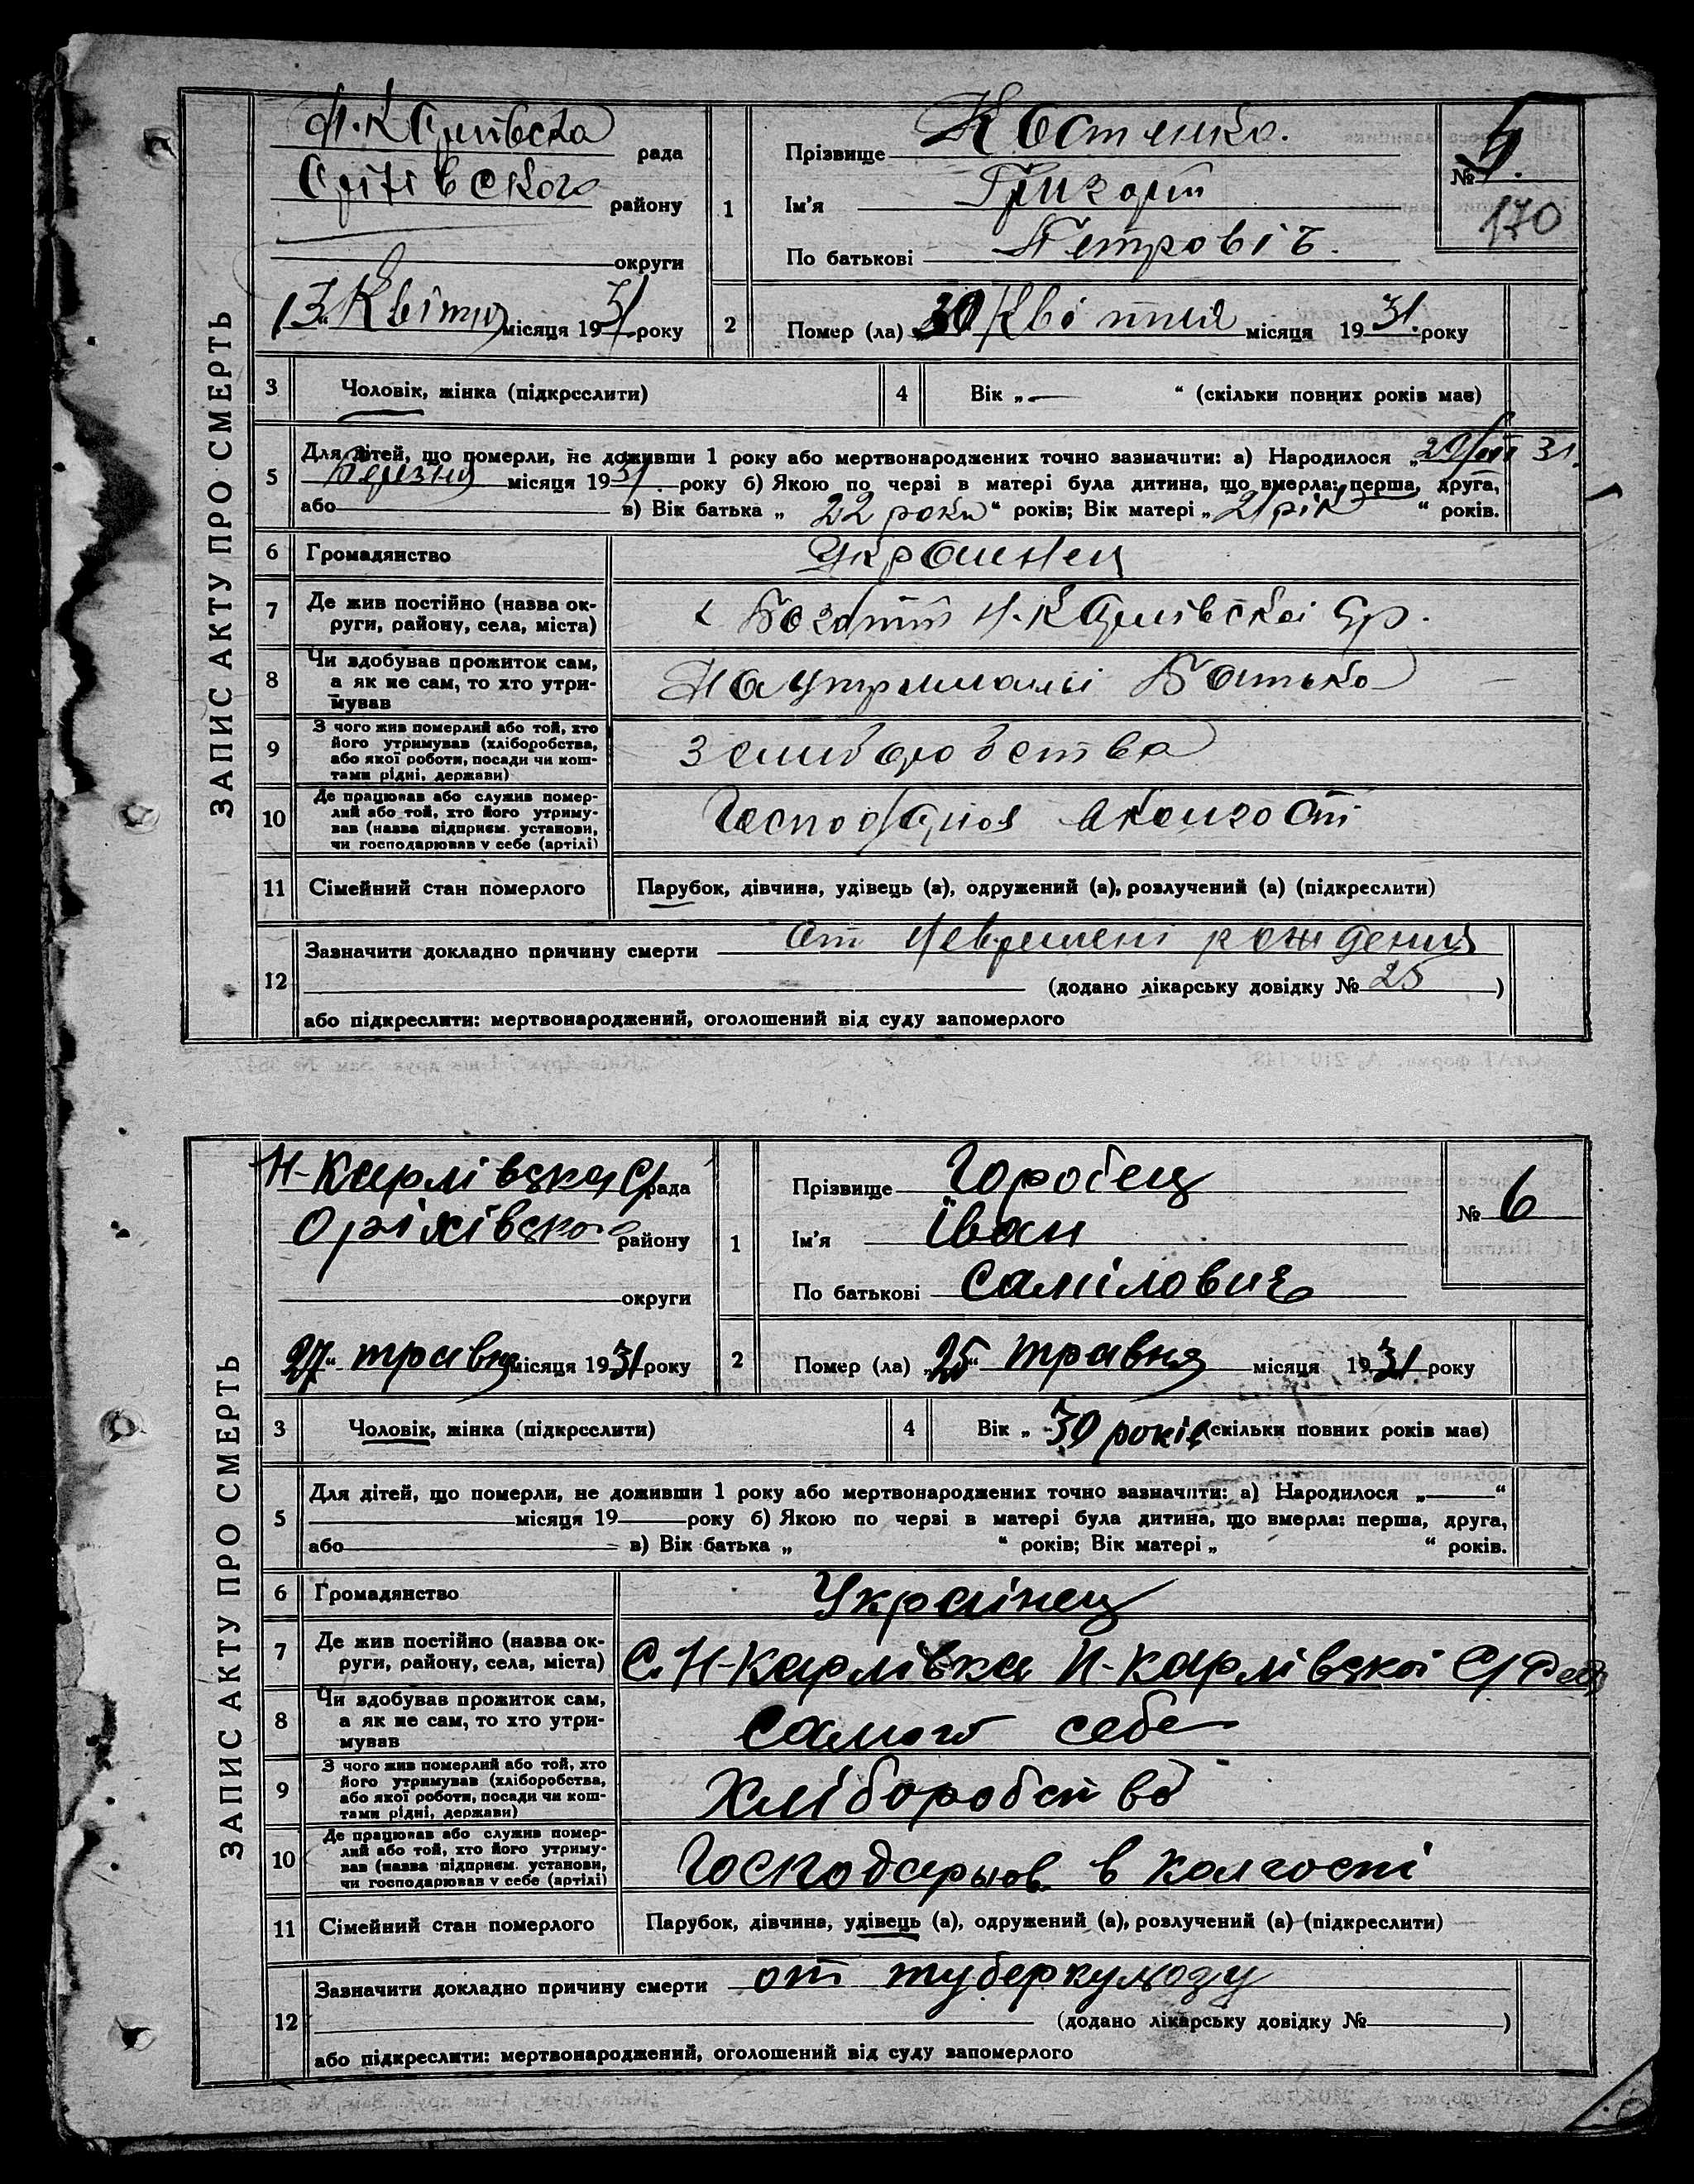 ЗАПИС АКТУ ПРО СМЕРТЬ
Н. Карлівска рада
району
округи
13 Квітня місяця 1931 року
1
Прізвище Костенко.
Ім'я Григорій
По батькові Петровіч.
№ 5.
170
2
Помер (ла) „30 Квітня місяця 1931. року
3
Чоловік, жінка (підкреслити)
4
Вік „— “ (скільки повних років має)
5
Для дітей, що померли, не доживши 1 року або мертвонароджених точно зазначити: а) Народилося „29/III 31.
Березня місяця 1931. року б) Якою по черзі в матері була дитина, що вмерла: перша, друга,
або в) Вік батька „ 22 роки “ років; Вік матері „ 21 рік “ років.
6
Громадянство
Украинец
7
Де жив постійно (назва ок-
руги, району, села, міста)
Н. Карлівскоі С/р.
8
Чи здобував прожиток сам,
а як не сам, то хто утри-
мував
На утриманьі Батька
9
З чого жив померлий або той, хто
його утримував (хліборобства,
або якої роботи, посади чи кош-
тами рідні, держави)
10
Де працював або служив помер-
лий або той, хто його утриму-
вав (назва підприєм. установи,
чи господарював у себе (артілі)
11
Сімейний стан померлого
Парубок, дівчина, удівець (а), одружений (а), розлучений (а) (підкреслити)
12
Зазначити докладно причину смерти от рождения
(додано лікарську довідку № 25 )
або підкреслити: мертвонароджений, оголошений від суду запомерлого
ЗАПИС АКТУ ПРО СМЕРТЬ
Н-Карлівська С/рада
Оріхівского району
округи
„27“ травня місяця 1931 року
1
Прізвище Горобец
Ім'я Іван
По батькові Самілович
№ 6
2
Помер (ла) „25“ травня місяця 1931 року
3
Чоловік, жінка (підкреслити)
4
Вік „ 30 років (скільки повних років має)
5
Для дітей, що померли, не доживши 1 року або мертвонароджених точно зазначити: а) Народилося „——“
місяця 19 року б) Якою по черзі в матері була дитина, що вмерла: перша, друга,
або в) Вік батька „ “ років; Вік матері „ “ років.
6
Громадянство
Українец
7
Де жив постійно (назва ок-
руги, району, села, міста)
С. Н-Карлівка Н-Карлівськоі С/Рад
8
Чи здобував прожиток сам,
а як не сам, то хто утри-
мував
Самого себе
9
З чого жив померлий або той, хто
його утримував (хліборобства,
або якої роботи, посади чи кош-
тами рідні, держави)
Хліборобство
10
Де працював або служив помер-
лий або той, хто його утриму-
вав (назва підприєм. установи,
чи господарював у себе (артілі)
Господарював в колгоспі
11
Сімейний стан померлого
Парубок, дівчина, удівець (а), одружений (а), розлучений (а) (підкреслити)
12
Зазначити докладно причину смерти от туберкульозу
(додано лікарську довідку № )
або підкреслити: мертвонароджений, оголошений від суду запомерлого